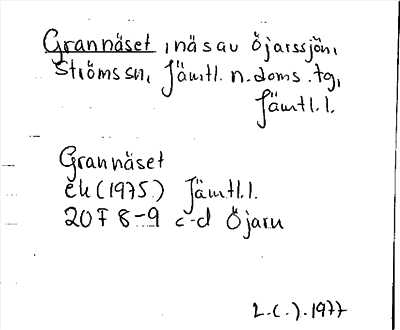 Grannäset, i näs av Öjarssjön,
Ströms sn, Jämtl. n. doms. tg,
Jämtl. l.
Grannäset
ek (1975) Jämtl. l.
20 F 8-9 c-d Öjarn
L.C.J. 1977